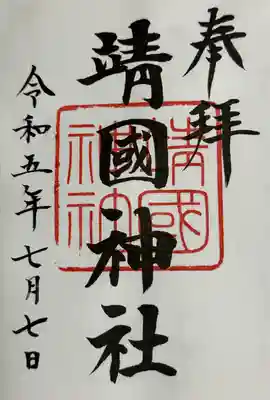 奉拜
靖國神社
靖國神社
令和五年七月七日